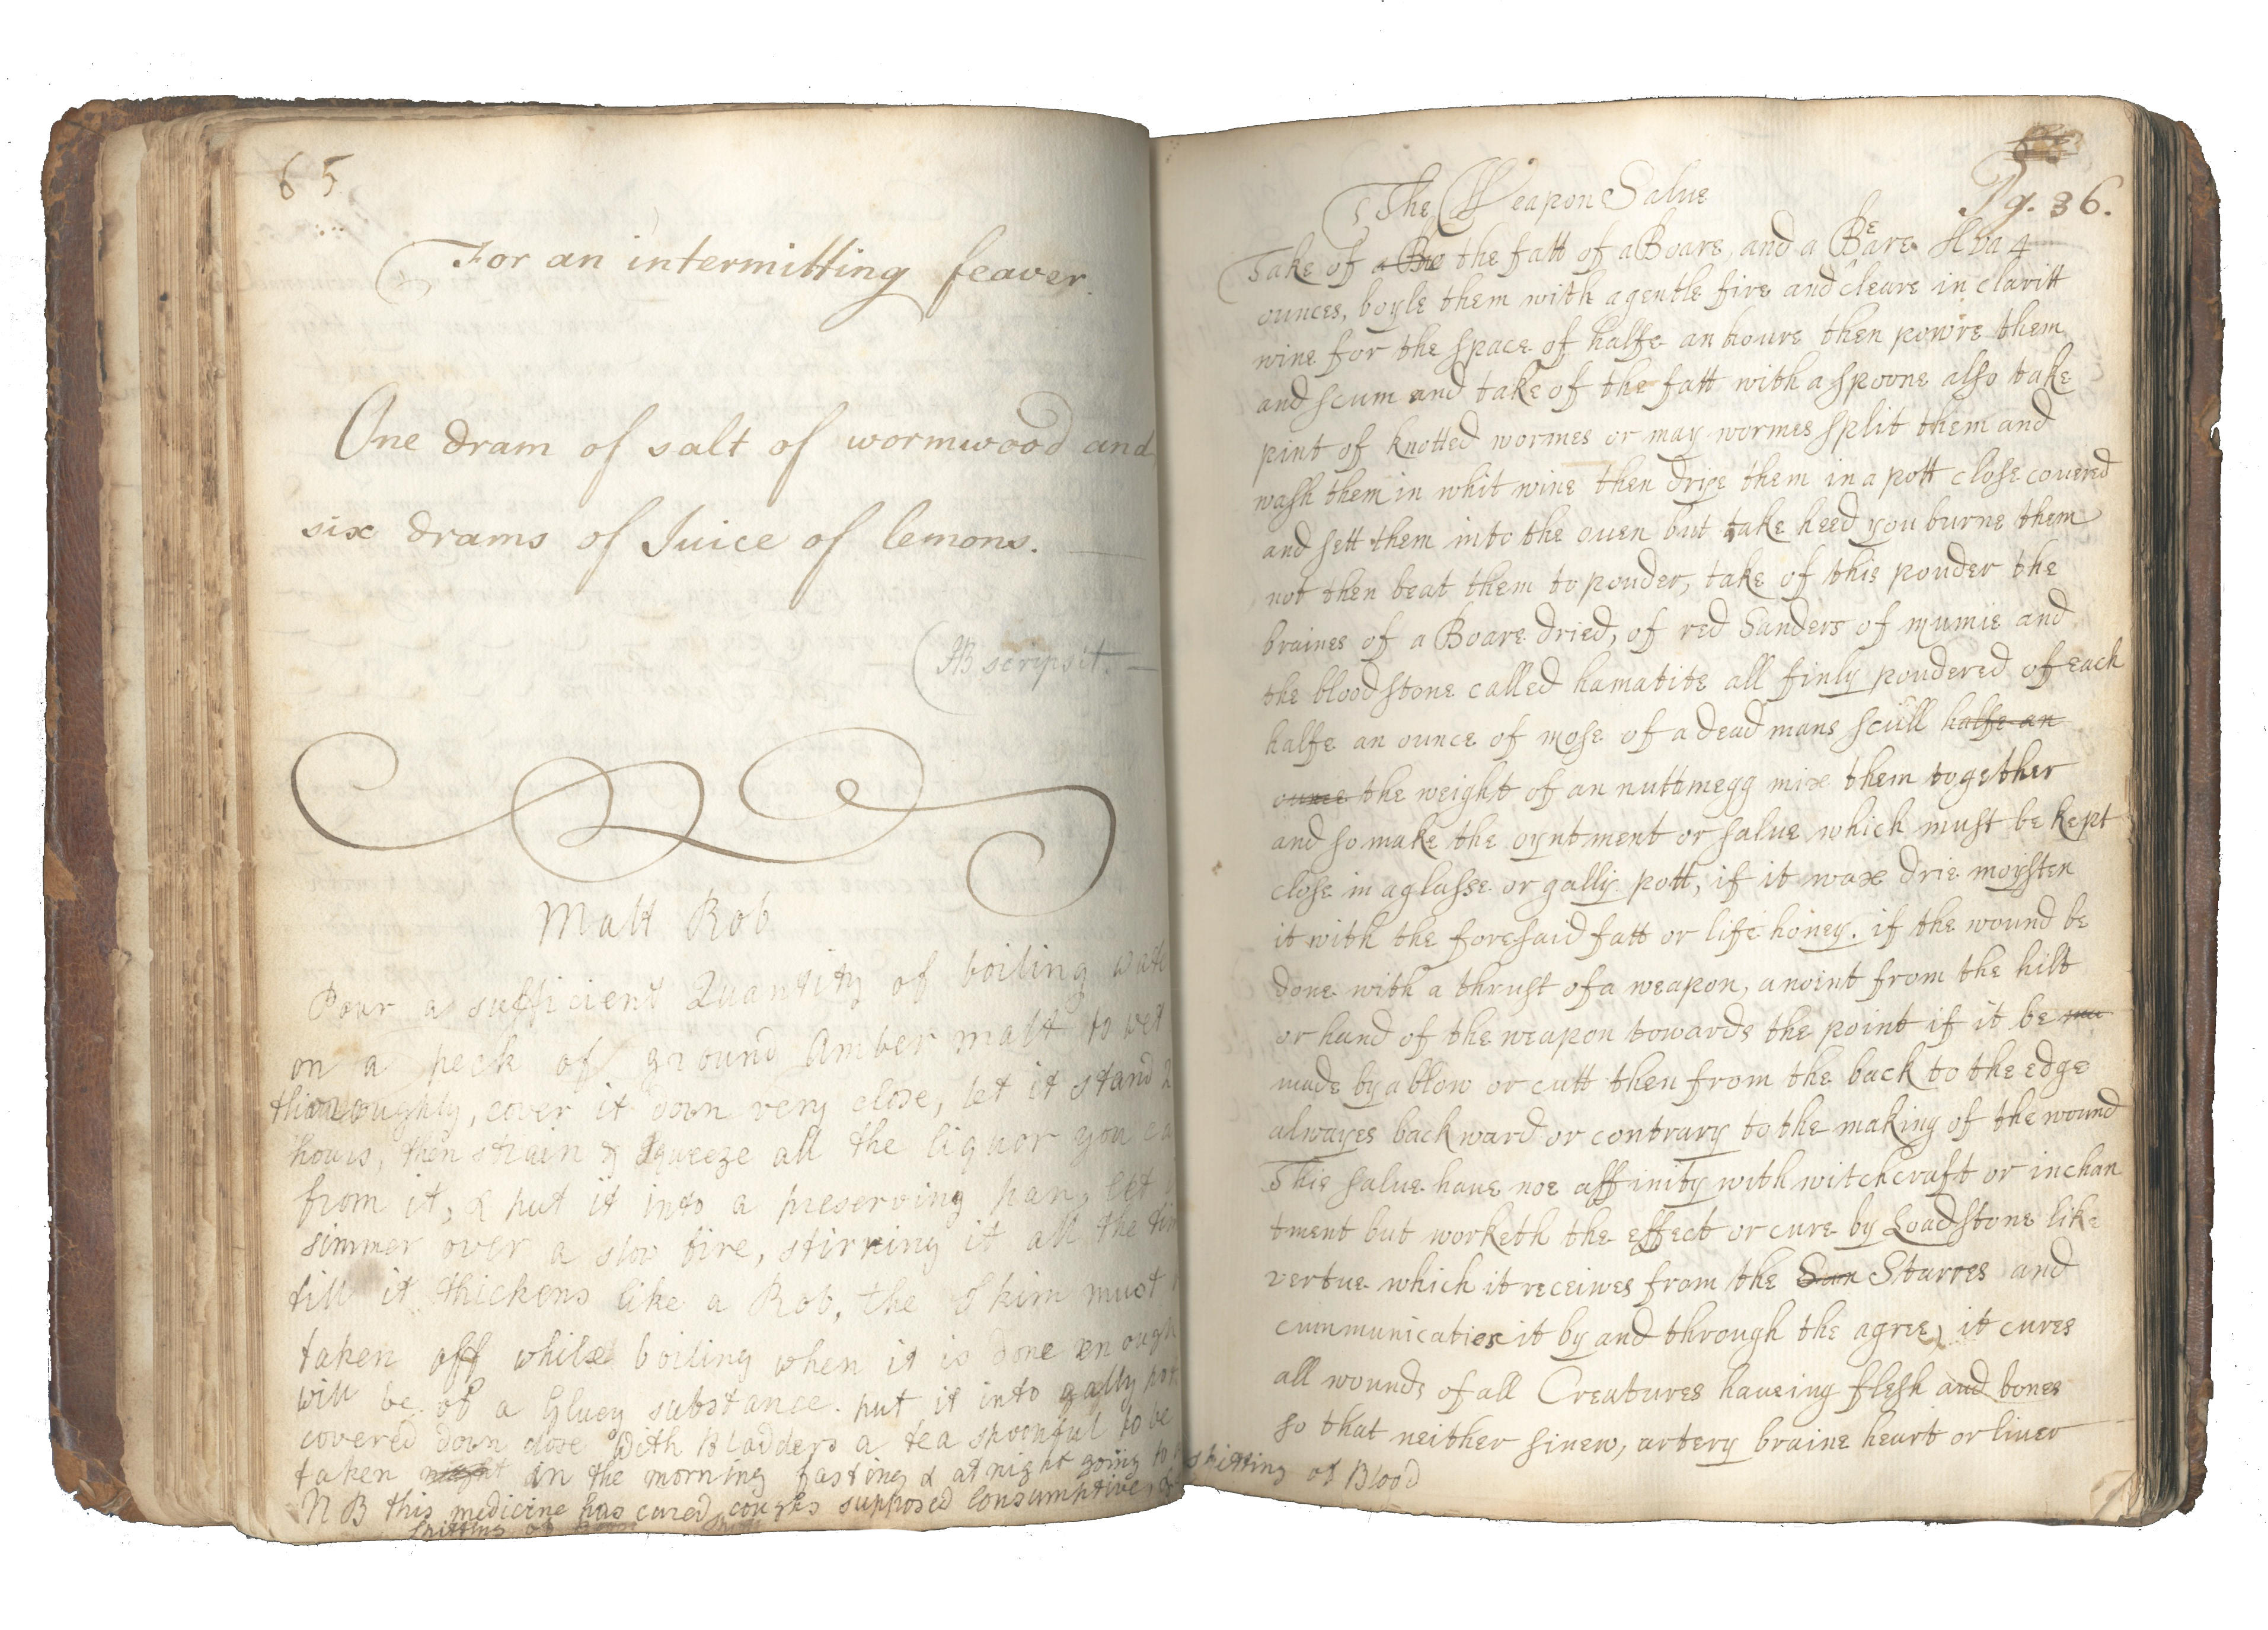 65
For an intermitting feaver.
One dram of salt of wormwood and
six drams of Juice of lemons.
AB scripsit.
Malt Rob
Pour a sufficient Quantity of boiling wate
on a peck of ground Amber malt to wet
thoroughly, cover it down very close, let it stand 2
hours, then strain & squeeze all the liquor you ca
from it, & put it into a preserving pan, let
simmer over a slow fire, stirring it all the tim
till it thickens like a Rob, the Skim must
taken off while boiling when it is done enough
will be of a Gluey substance. put it into gally pot
covered down close with Bladders a tea spoonful to be
taken night in the morning fasting & at night going to
N B this medicine has cured coughs supposed Consumptive, &
spitting of
Pg. 36.
The Weapon Salve
Take of a the fatt of a Boare, and a Beare 4
ounces, boyle them with a gentle fire and cleare in claritt
wine for the space of halfe an houre then powre them
and scum and take of the fatt with a spoone also take
pint of knotted wormes or may wormes split them and
wash them in whit wine then drie them in a pott close covered
and sett them into the ouen but take heed you burne them
not then beat them to pouder, take of this pouder the
braines of a Boare dried, of red Sanders of mumie and
the blood stone called hamatite all finly poudered of each
halfe an ounce of mose of a dead mans scull halfe an
ounce the weight of an nuttmegg mix them together
and so make the oyntment or salue which must be kept
close in a glasse or gally pott, if it wax drie moysten
it with the foresaid fatt or life honey. if the wound be
done with a thrust of a weapon, anoint from the hilt
or hand of the weapon towards the point if it be
made by a blow or cutt then from the back to the edge
alwayes backward or contrary to the making of the wound
This salue haue noe affinity with witchcraft or inchan
tment but worketh the effect or cure by Loadstone like
vertue which it receiues from the Sun Starres and
cummunicaties it by and through the agree, it cures
all wounds of all Creatures haueing flesh and bones
so that neither sinew, artery braine heart or liuer
spitting of Blood